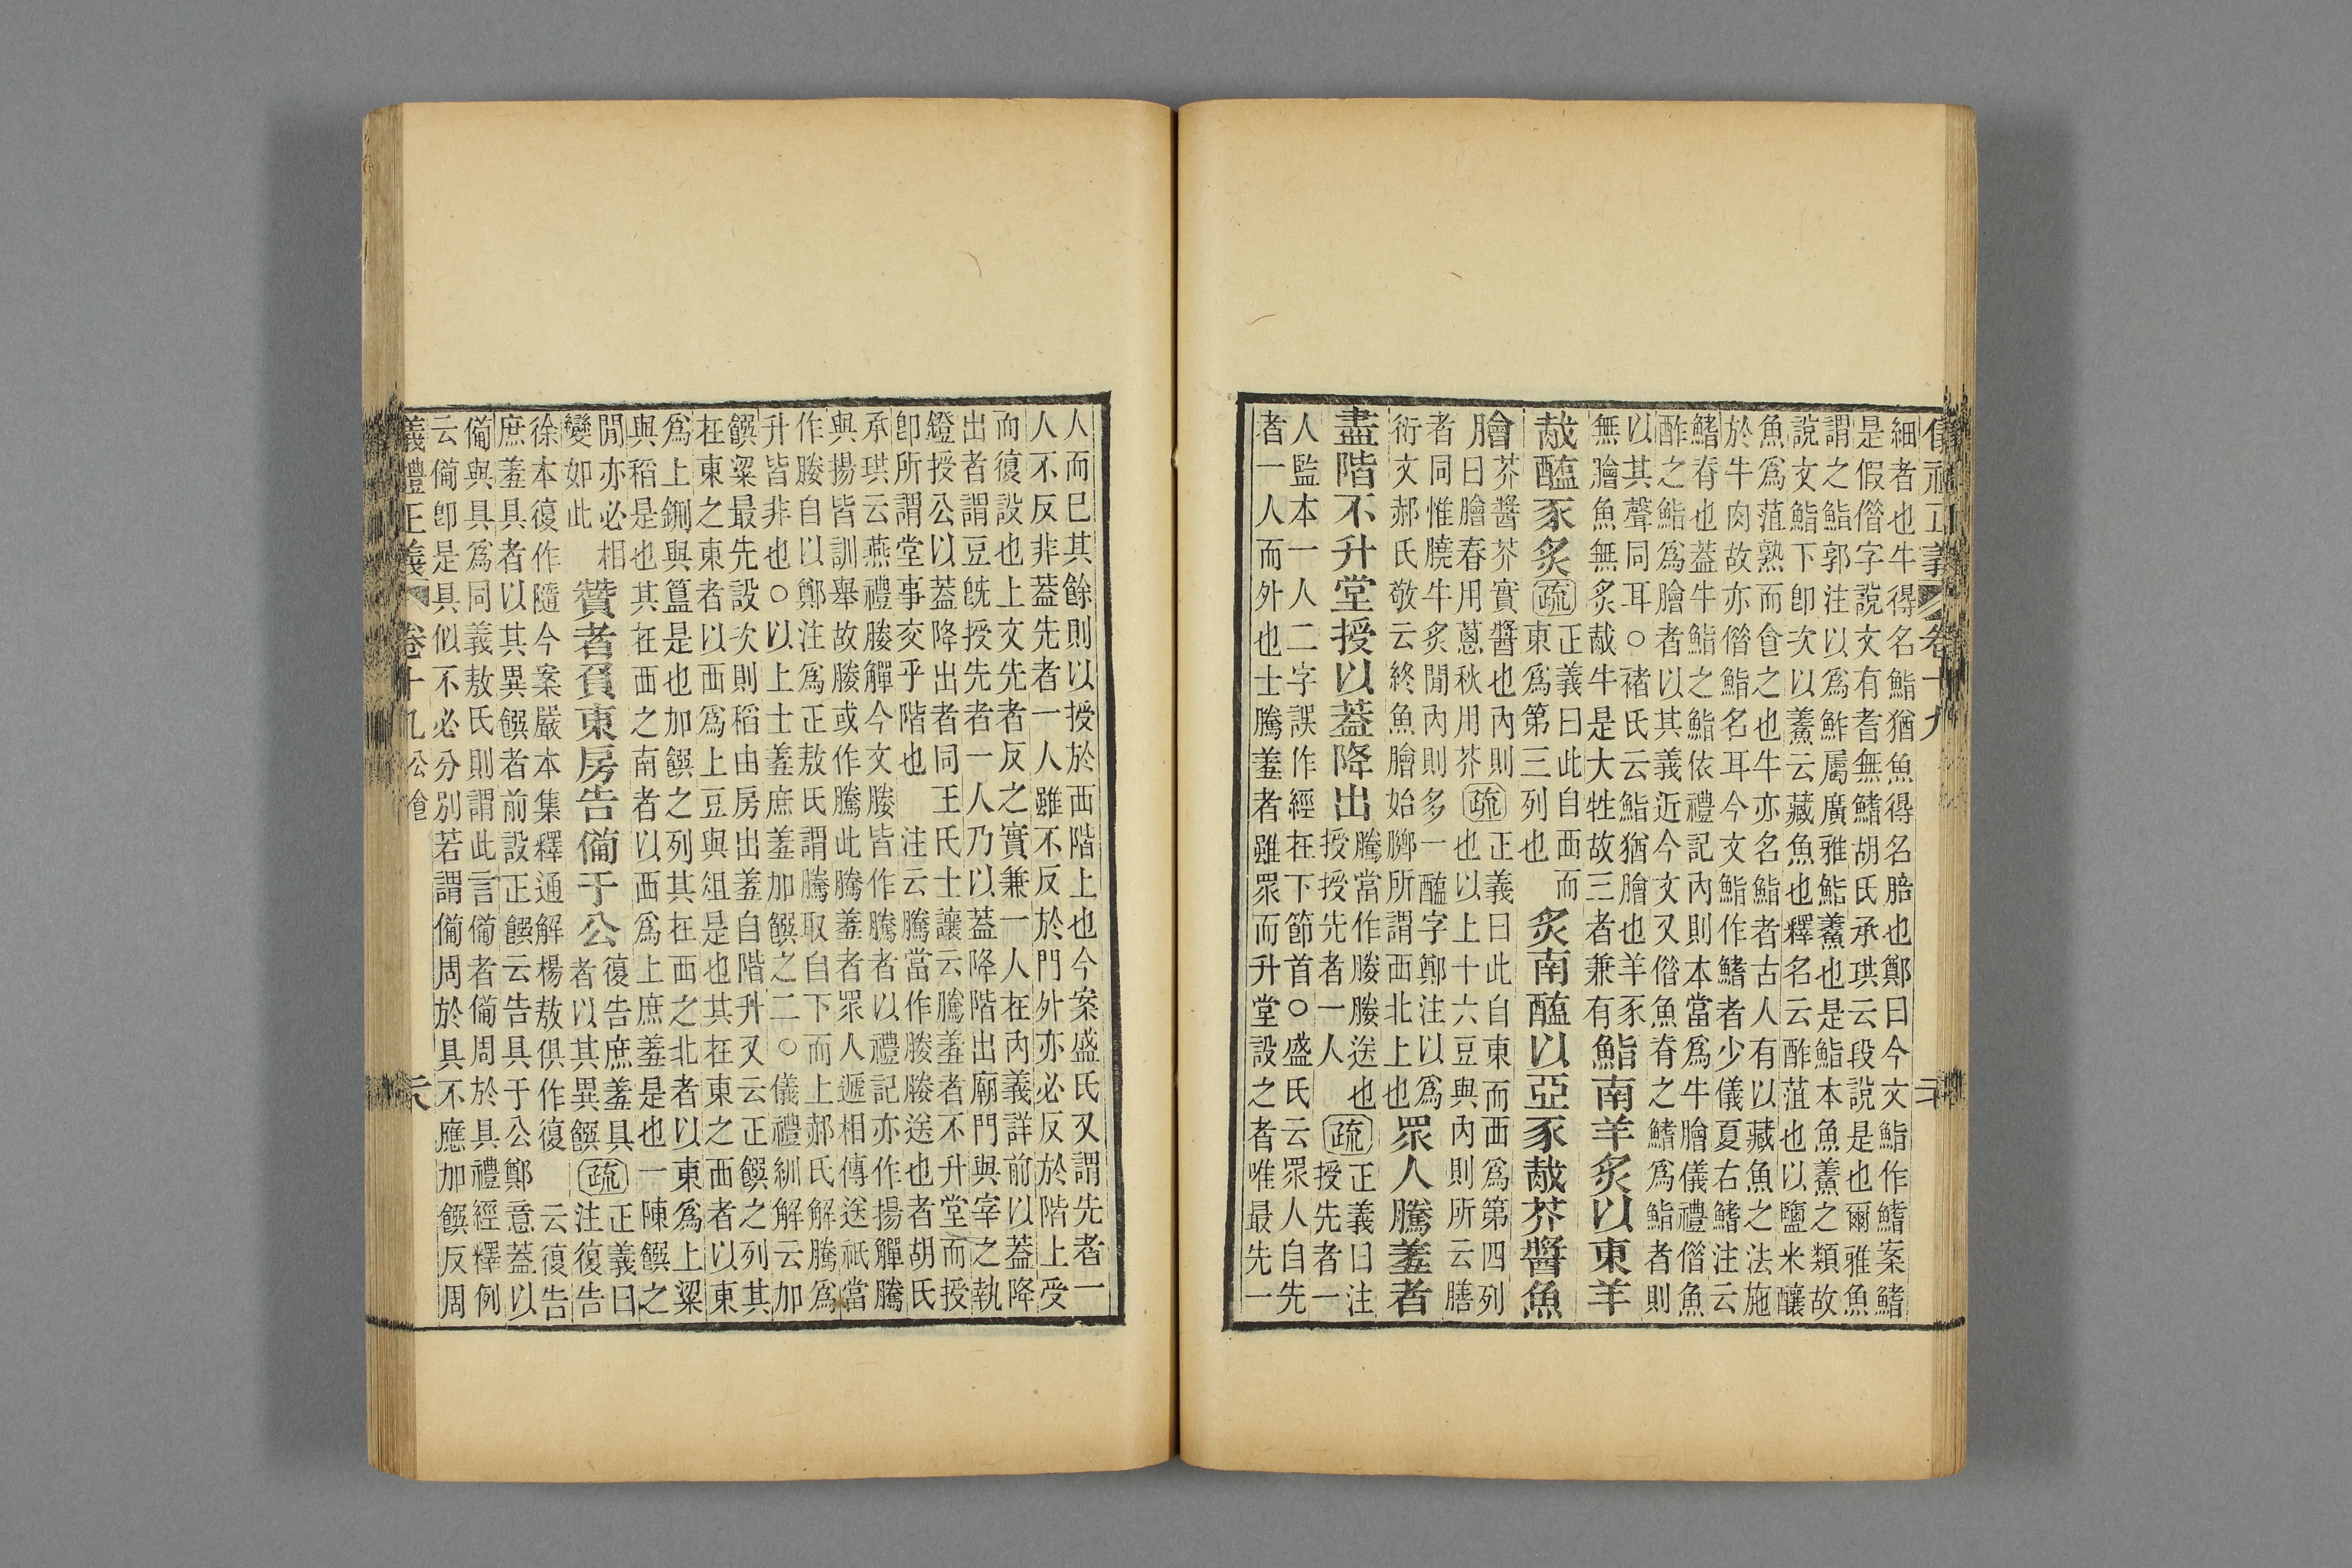 細者也牛得名鮨猶魚得名也鄭曰今文鮨作鰭案鰭
是假僭字說文有耆無鰭胡氏承珙云段說是也爾雅魚
謂之鮨郭注以爲鮓屬廣雅鮚鯗也是鮨本魚鯗之類故
說文鮨下卽次以鯗云藏魚也釋名云酢菹也以鹽米釀
魚爲菹熟而食之也牛亦名鮨者古人有以藏魚之法施
於牛肉故亦僭鮨名耳今文鮨作鰭者少儀夏右鰭注云
鰭脊也蓋牛鮨之鮨依禮記內則本當爲牛膾儀禮僭魚
酢之鮨爲膾者以其義近今文又僭魚脊之鰭爲鮨者則
以其聲同耳○褚氏云鮨猶膾也羊豕
無膾魚無炙胾牛是大牲故三者兼有
鮨南羊炙以東羊
胾醢豕炙疏正義曰此自西而
東爲第三列也
炙南醢以亞豕胾芥醬魚
膾芥醬芥實醬也內則
曰膾春用蔥秋用芥
疏正義曰此自東而西爲第四列
也以上十六豆與內則所云膳
者同惟膮牛炙閒內則多一醢字鄭注以爲
衍文郝氏敬云終魚膾始膷所謂西北上也
眾人騰羞者
盡階不升堂授以蓋降出騰當作媵媵送也
授授先者一人
疏正義曰注
授先者一
人監本一人二字誤作經在下節首○盛氏云眾人自先
者一人而外也士騰羞者雖眾而升堂設之者唯最先一
人而已其餘則以授於西階上也今案盛氏又謂先者一
人不反非蓋先者一人雖不反於門外亦必反於階上受
而復設也上文先者反之實兼一人在內義詳前以蓋降
出者謂豆旣授先者一人乃以蓋降階出廟門與宰之執
鐙授公以蓋降出者同王氏士讓云騰羞者不升堂而授
卽所謂堂事交乎階也　注云騰當作媵媵送也者胡氏
承珙云燕禮媵觶今文媵皆作騰者以禮記亦作揚觶騰
與揚皆訓舉故媵或作騰此騰羞者眾人遞相傳送祇當
作媵自以鄭注爲正敖氏謂騰取自下而上郝氏解騰爲
升皆非也○以上士羞庶羞加饌之二○儀禮紃解云加
饌粱最先設次則稻由房出羞自階升又云正饌之列其
在東之東者以西爲上豆與俎是也其在東之西者以東
爲上鉶與簋是也加饌之列其在西之北者以東爲上粱
與稻是也其在西之南者以西爲上庶羞是也一陳饌之
閒亦必相
變如此
贊者負東房告備于公復告庶羞具
者以其異饌
疏正義曰
注復告
徐本復作隨今案嚴本集釋通解楊敖俱作復　云復告
庶羞具者以其異饌者前設正饌云告具于公鄭意蓋以
備與具爲同義敖氏則謂此言備者備周於具禮經釋例
云備卽是具似不必分別若謂備周於具不應加饌反周